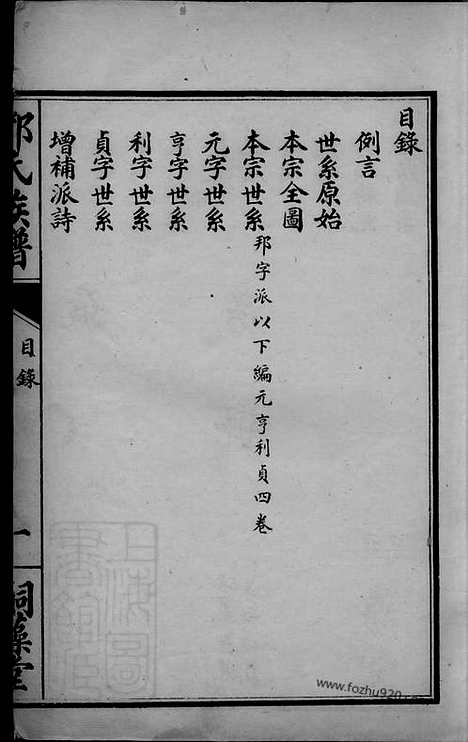 目錄
例言
世系原始
本宗全圖
本宗世系 邦字派以下編元亨利貞四卷
元字世系
亨字世系
利字世系
貞字世系
增補派詩
氏族譜
目錄
一
上海圖書館藏
www.fozhu920.com